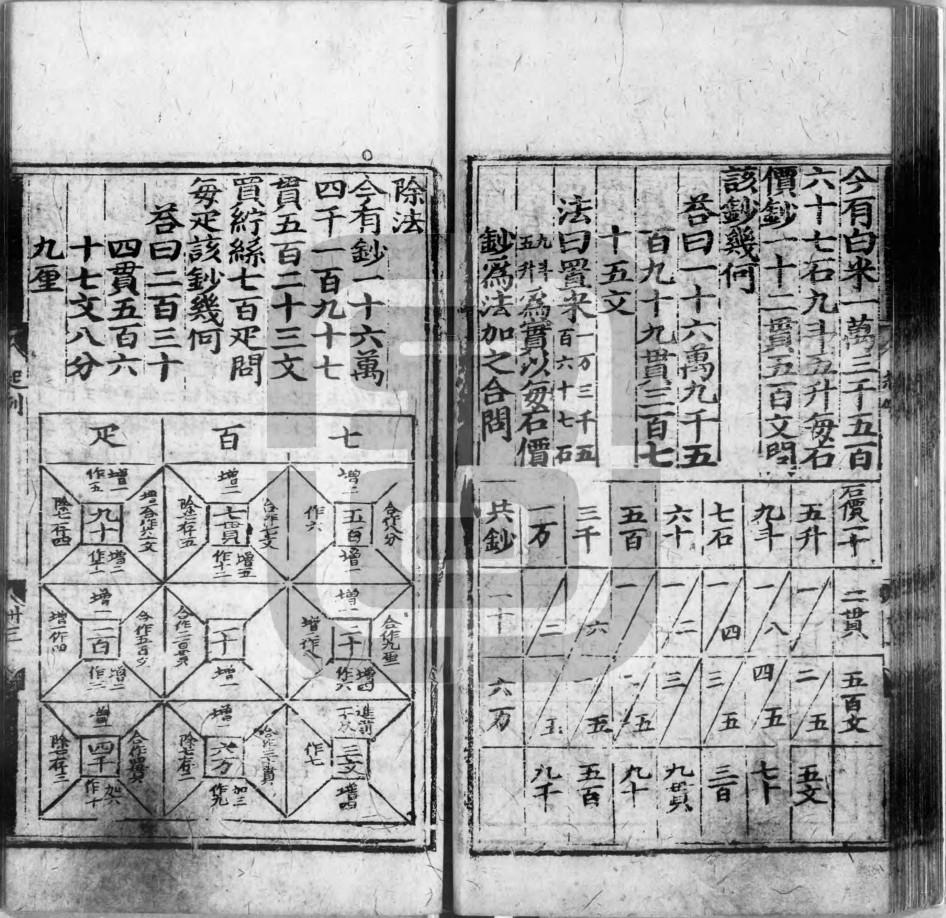 今有白米一萬三千五百
六十七石九斗五升每石
價鈔一十二貫五百文問
該鈔幾何
荅曰一十六萬九千五
百九十九貫三百七
十五文
法曰置米一万三千五百六十七石
九斗五升為實以每石價
鈔爲法加之合問
石價一十
二貫
五百文
五升
一
二
五
五文
九斗
一
八
四
五
七十
七石
一
四
三
五
三百
六十
一
二
三
九貫
五百
一
一
五
九十
三千
六
一
五
五百
一万
二
五
九千
共鈔
一十
六万
除法
今有鈔一十六萬
四千一百九十七
貫五百二十三文
買紵絲七百疋問
每疋該鈔幾何
荅曰二百三十
四貫五百六
十七文八分
九厘
七
百
疋
增二
五百
增一
作六
合作八分
增二
七貫
增五
作十二
除七存五
合作七文
增一
作五
九十
增二
作十一
除七存四
增一
二十
增四
作六
合作九厘
一十
增一
增
二百
增二
作四
進前
三文
增四
作七
增二
六万
加三
作九
除七存二
四千
加六
作十